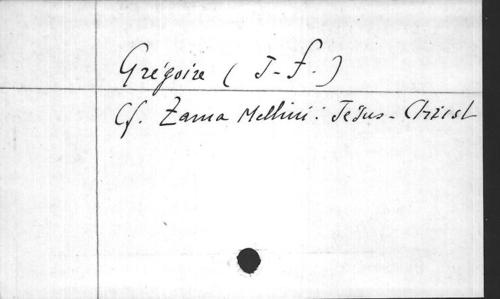 Grégoire ( J-f. )
Cf. Zama Mellini : Jésus-Christ